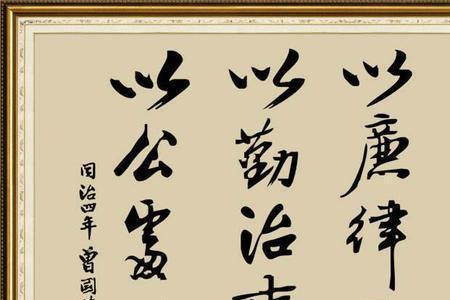 以廉律
以勤治
以公處
同治四年曾國